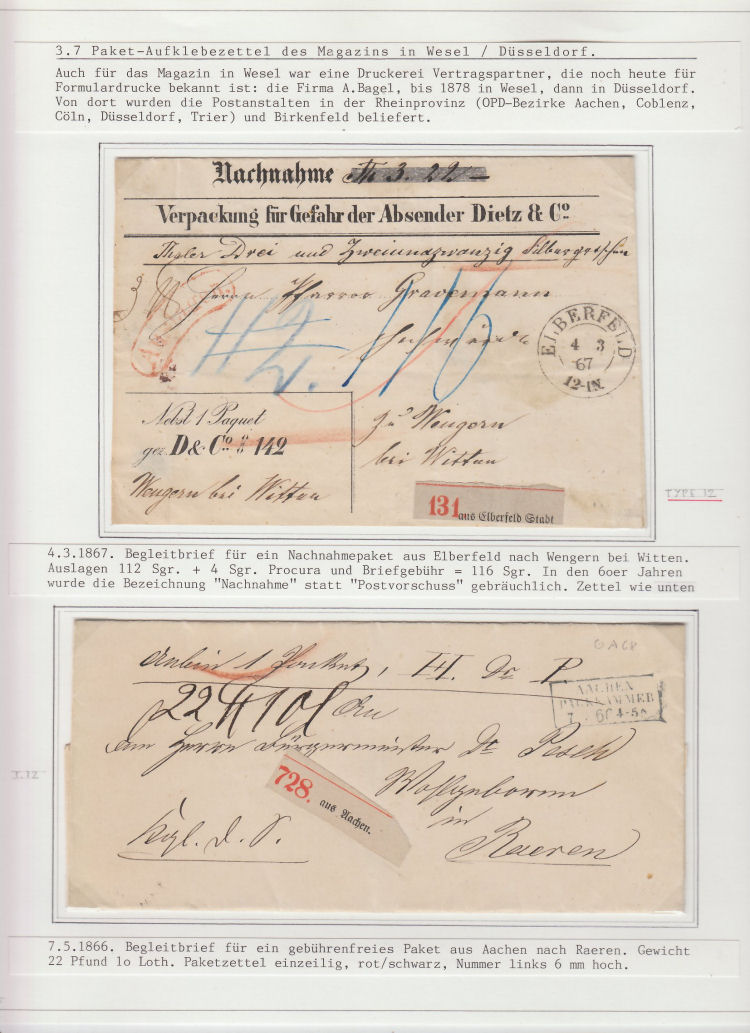 3.7 Paket-Aufklebezettel des Magazins in Wesel / Düsseldorf.
Auch für das Magazin in Wesel war eine Druckerei Vertragspartner, die noch heute für
Formulardrucke bekannt ist: die Firma A.Bagel, bis 1878 in Wesel, dann in Düsseldorf.
Von dort wurden die Postanstalten in der Rheinprovinz (OPD-Bezirke Aachen, Coblenz,
Cöln, Düsseldorf, Trier) und Birkenfeld beliefert.
Nachnahme 3. 22
Verpackung für Gefahr der Absender Dietz & Co
Thaler Drei und Zweiundzwanzig Silbergroschen
Herrn Pfarrer Gravemann
112 116
ELBERFELD
4 3
67
12-1N.
Nebst 1 Paquet
gez. D & Co 142
zu Wengern
bei Witten
Wengern bei Witten
131 aus Elberfeld Stadt
TYPE 12
4.3.1867. Begleitbrief für ein Nachnahmepaket aus Elberfeld nach Wengern bei Witten.
Auslagen 112 Sgr. + 4 Sgr. Procura und Briefgebühr = 116 Sgr. In den 6oer Jahren
wurde die Bezeichnung "Nachnahme" statt "Postvorschuss" gebräuchlich. Zettel wie unten
Anbei 1 Packet, H. Dr P
AACHEN
PACKKAMMER
7 66 4-5
22 10 An
den Herrn Bürgermeister Dr Pesch
Wohlgeboren
728. aus Aachen.
in
Raeren
T.12
7.5.1866. Begleitbrief für ein gebührenfreies Paket aus Aachen nach Raeren. Gewicht
22 Pfund 1o Loth. Paketzettel einzeilig, rot/schwarz, Nummer links 6 mm hoch.